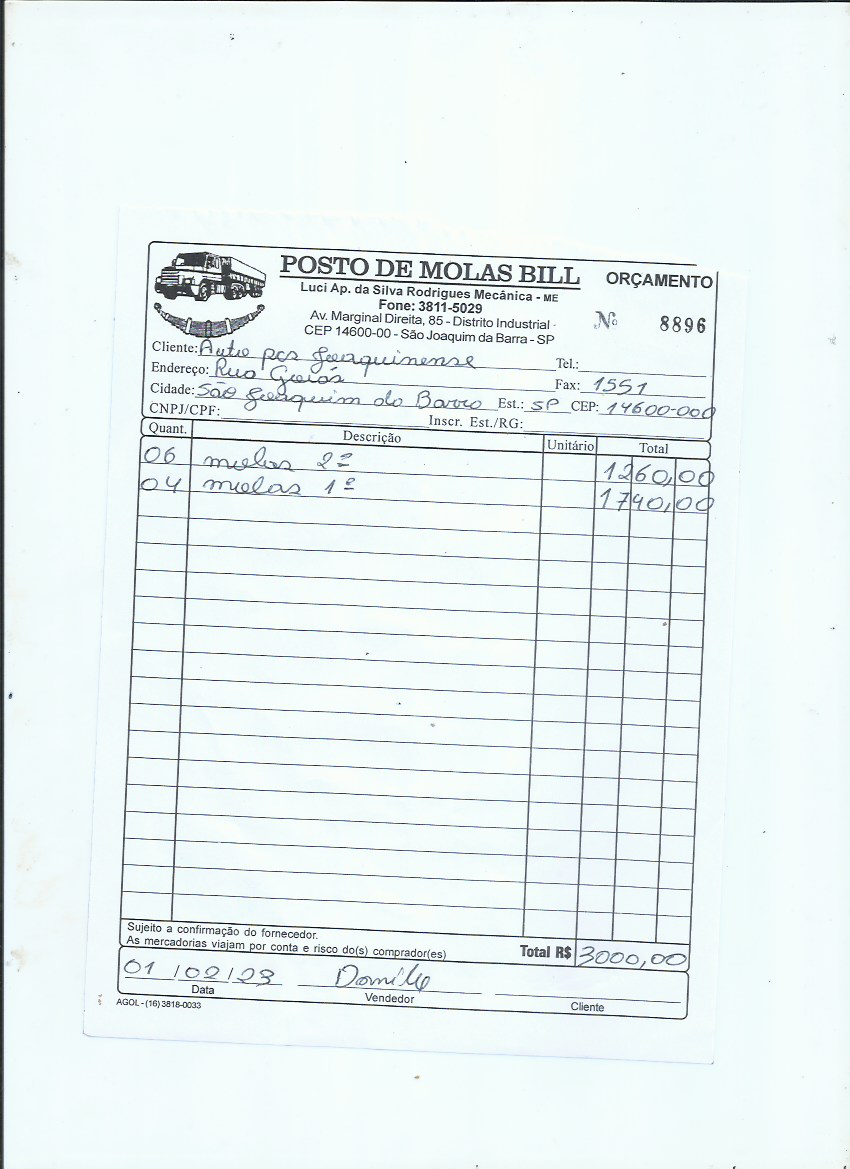 POSTO DE MOLAS BILL
ORÇAMENTO
Luci Ap. da Silva Rodrigues Mecânica - ME
Fone: 3811-5029
Av. Marginal Direita, 85 - Distrito Industrial -
CEP 14600-00 - São Joaquim da Barra - SP
Nº 8896
Cliente: Auto pçs Joaquinense Tel.:
Endereço: Rua Goiás Fax: 1551
Cidade: São Joaquim da Barra Est.: SP CEP: 14600-000
CNPJ/CPF: Inscr. Est./RG:
Quant. Descrição Unitário Total
06 molas 2ª 1260,00
04 molas 1ª 1740,00
Sujeito a confirmação do fornecedor.
As mercadorias viajam por conta e risco do(s) comprador(es)
Total R$ 3000,00
01/02/23 Danilo
Data Vendedor Cliente
AGOL - (16) 3818-0033